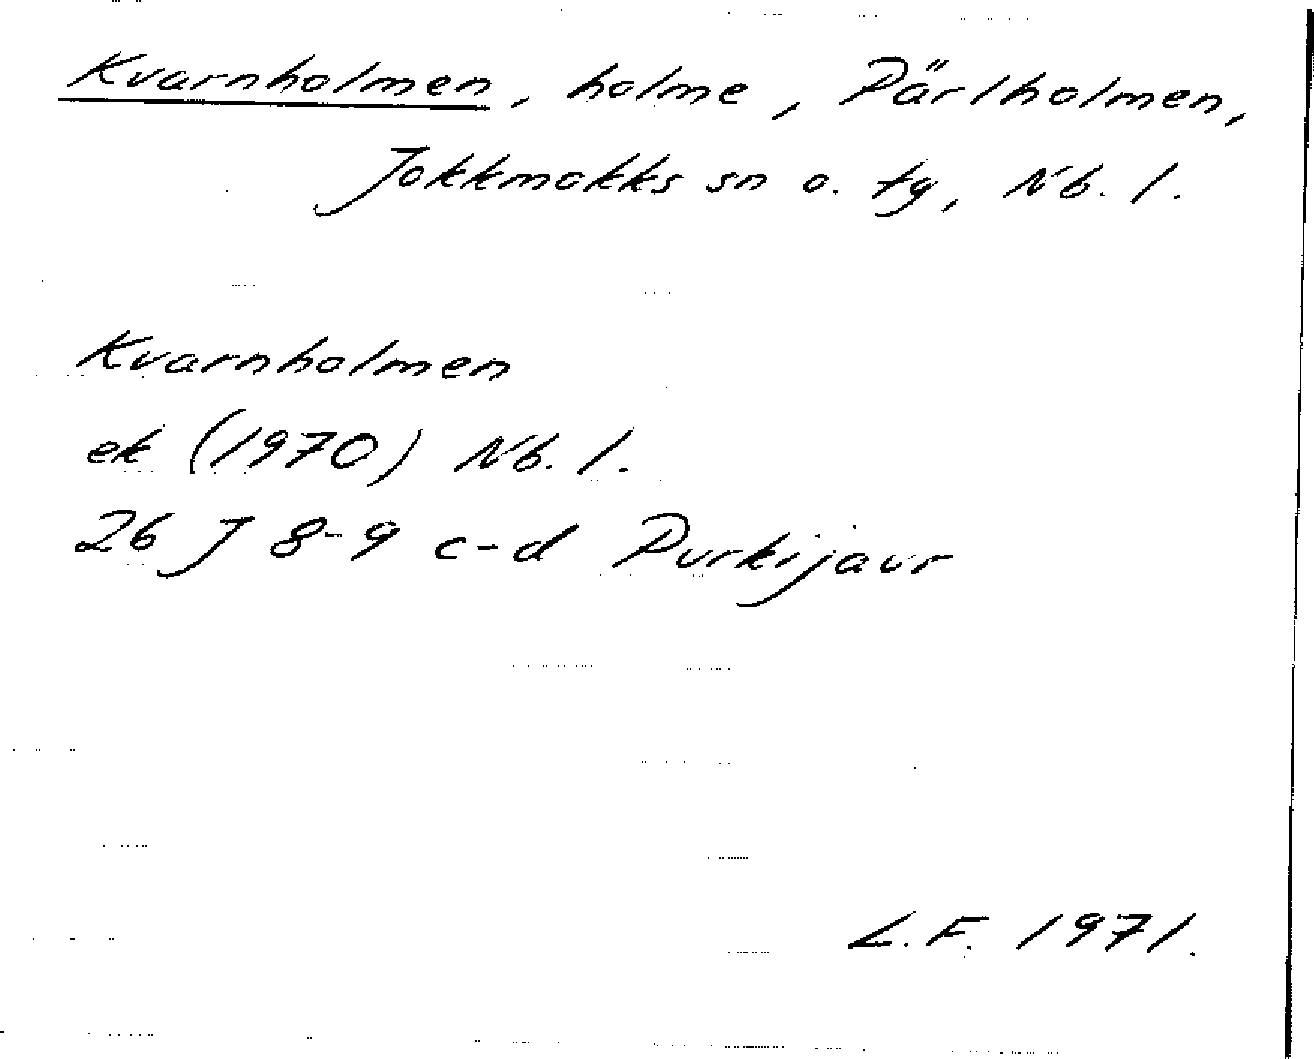 Kvarnholmen, holme, Pärlholmen,
Jokkmokks sn o. tg, Nb. l.
Kvarnholmen
ek (1970) Nb. l.
26 J 8-9 c-d Purkijaur
L. F. 1971.